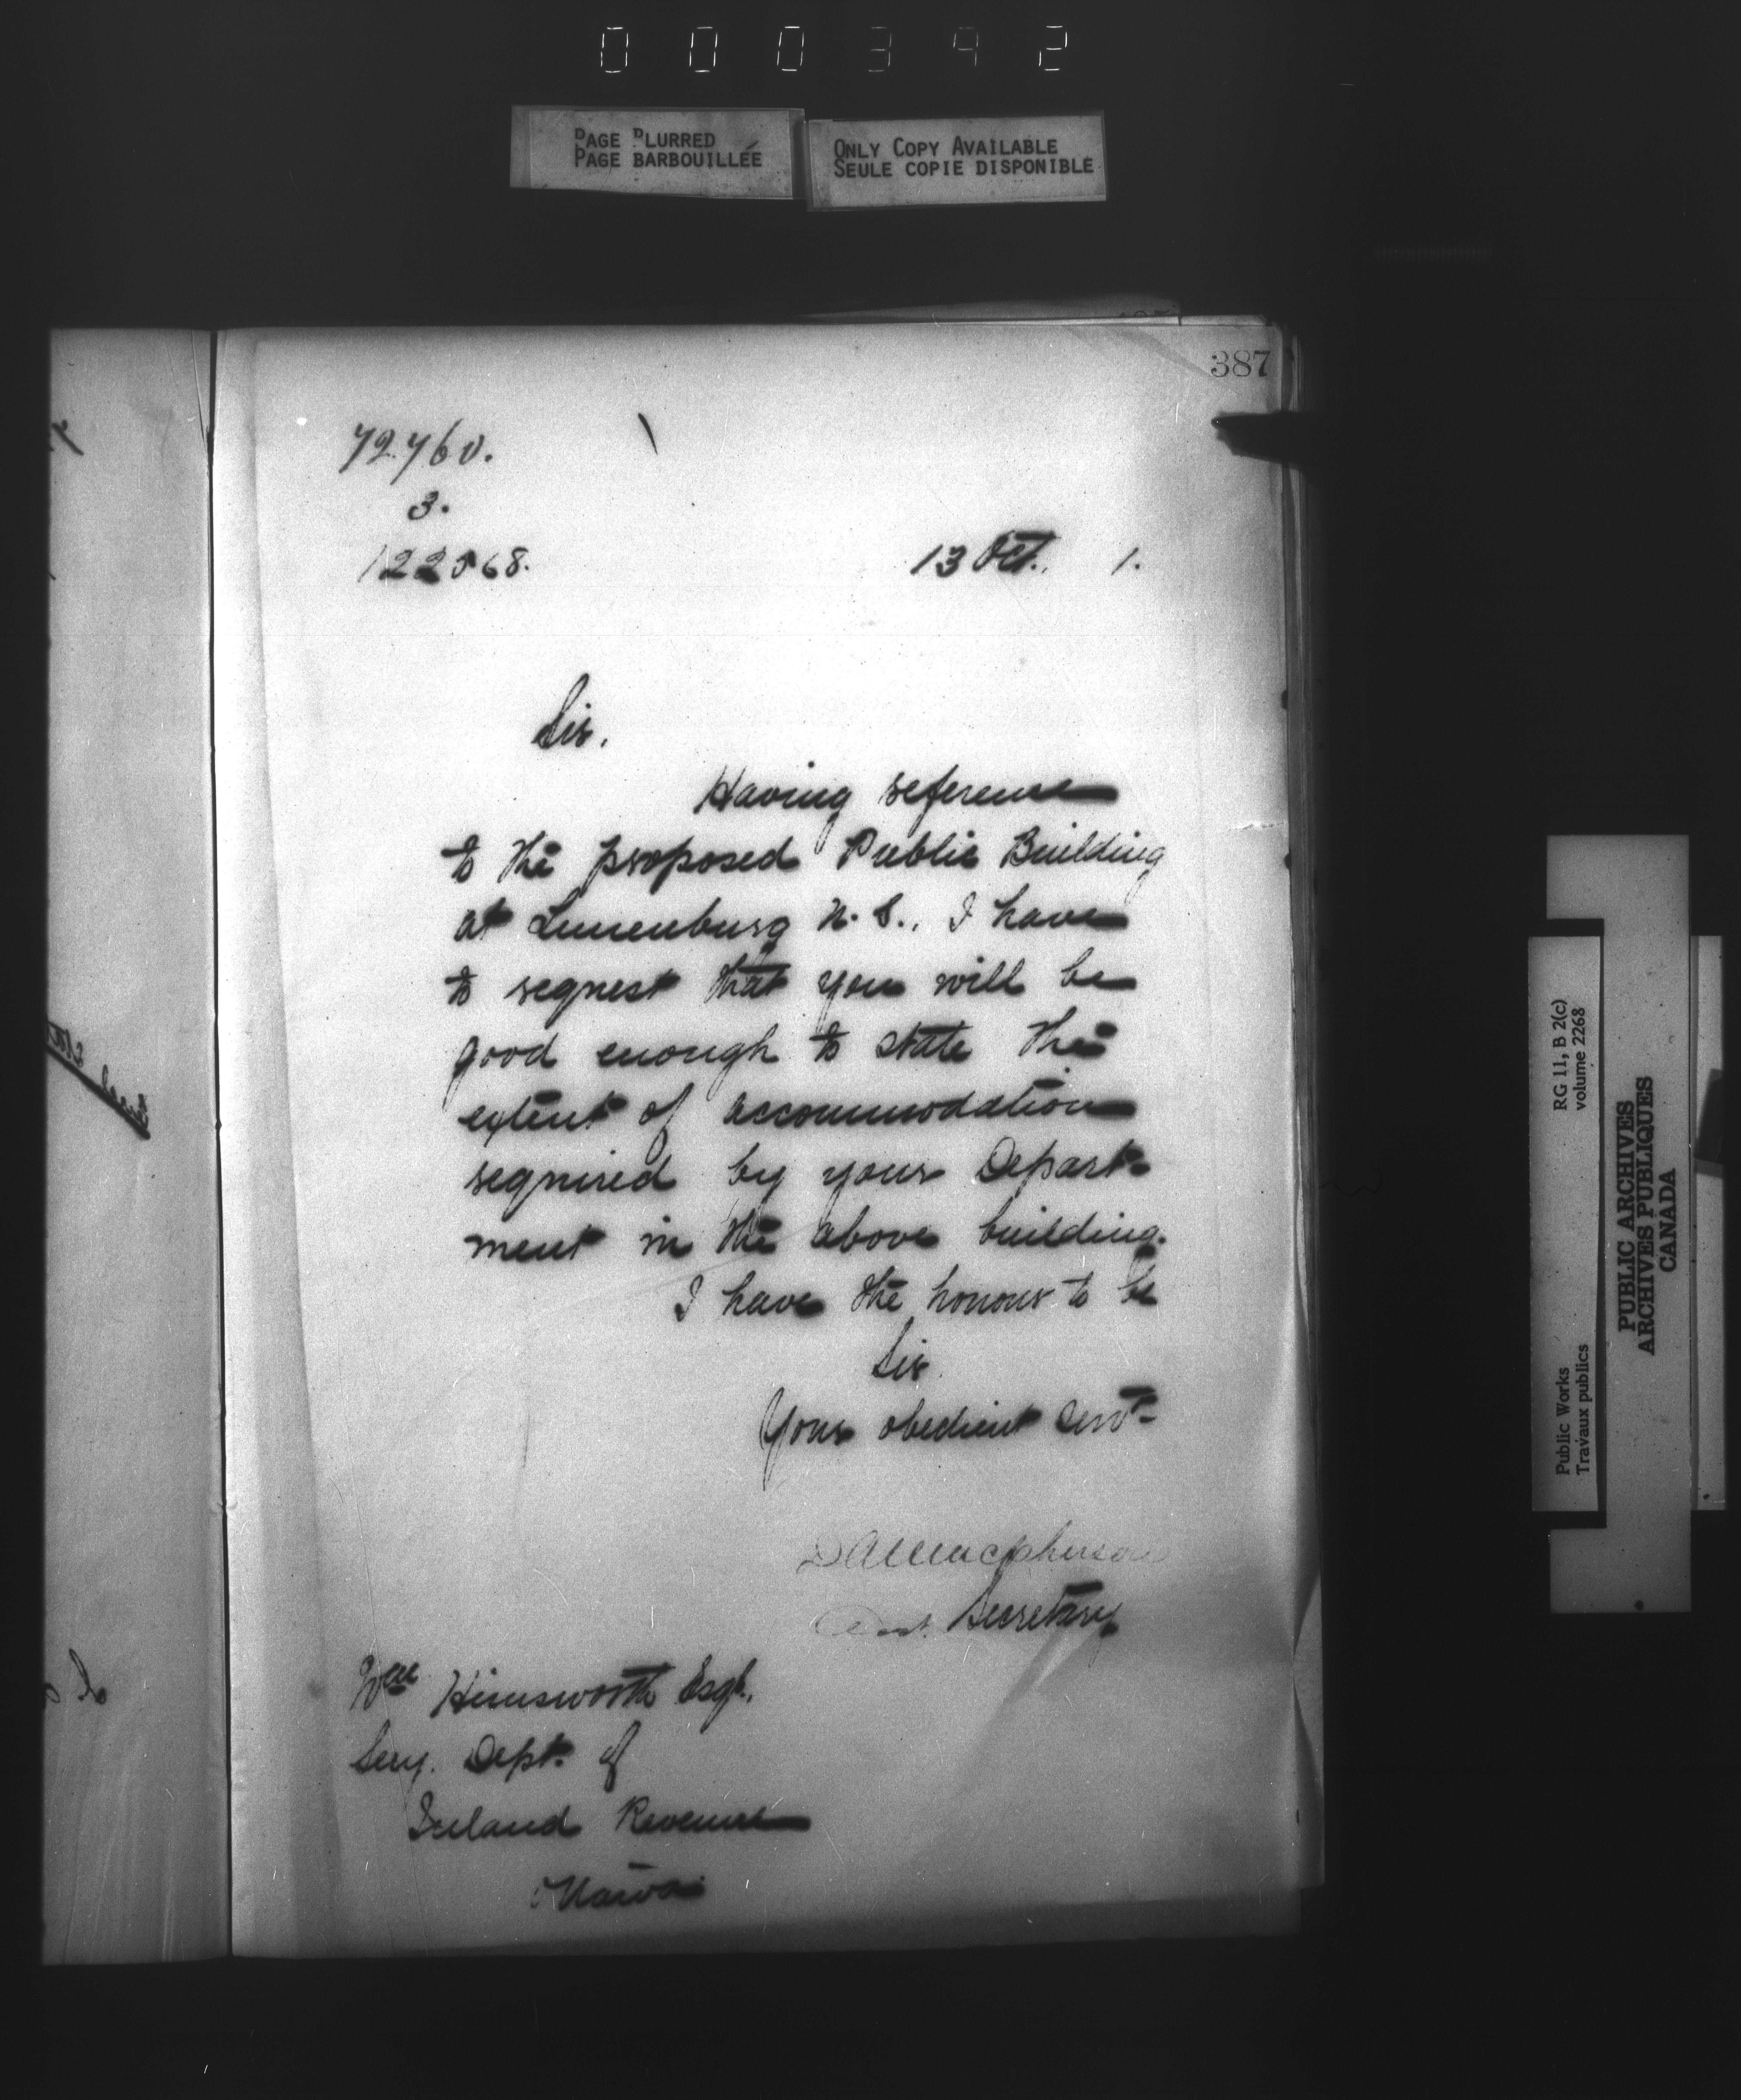 000342
PAGE BLURRED
PAGE BARBOUILLÉE
ONLY COPY AVAILABLE
SEULE COPIE DISPONIBLE
387
72760.
3.
122568.
13 Oct. 1.
Sir,
Having reference
to the proposed Public Building
at Lunenburg N.S., I have
to request that you will be
good enough to state the
extent of accommodation
required by your Depart-
ment in the above building.
I have the honour to be
Sir
Your obedient Servt
DA Macpherson
Asst. Secretary
Wm Himsworth Esqr.,
Secy. Dept. of
Inland Revenue
Ottawa
RG 11, B 2(c)
volume 2268
Public Works
Travaux publics
PUBLIC ARCHIVES
ARCHIVES PUBLIQUES
CANADA